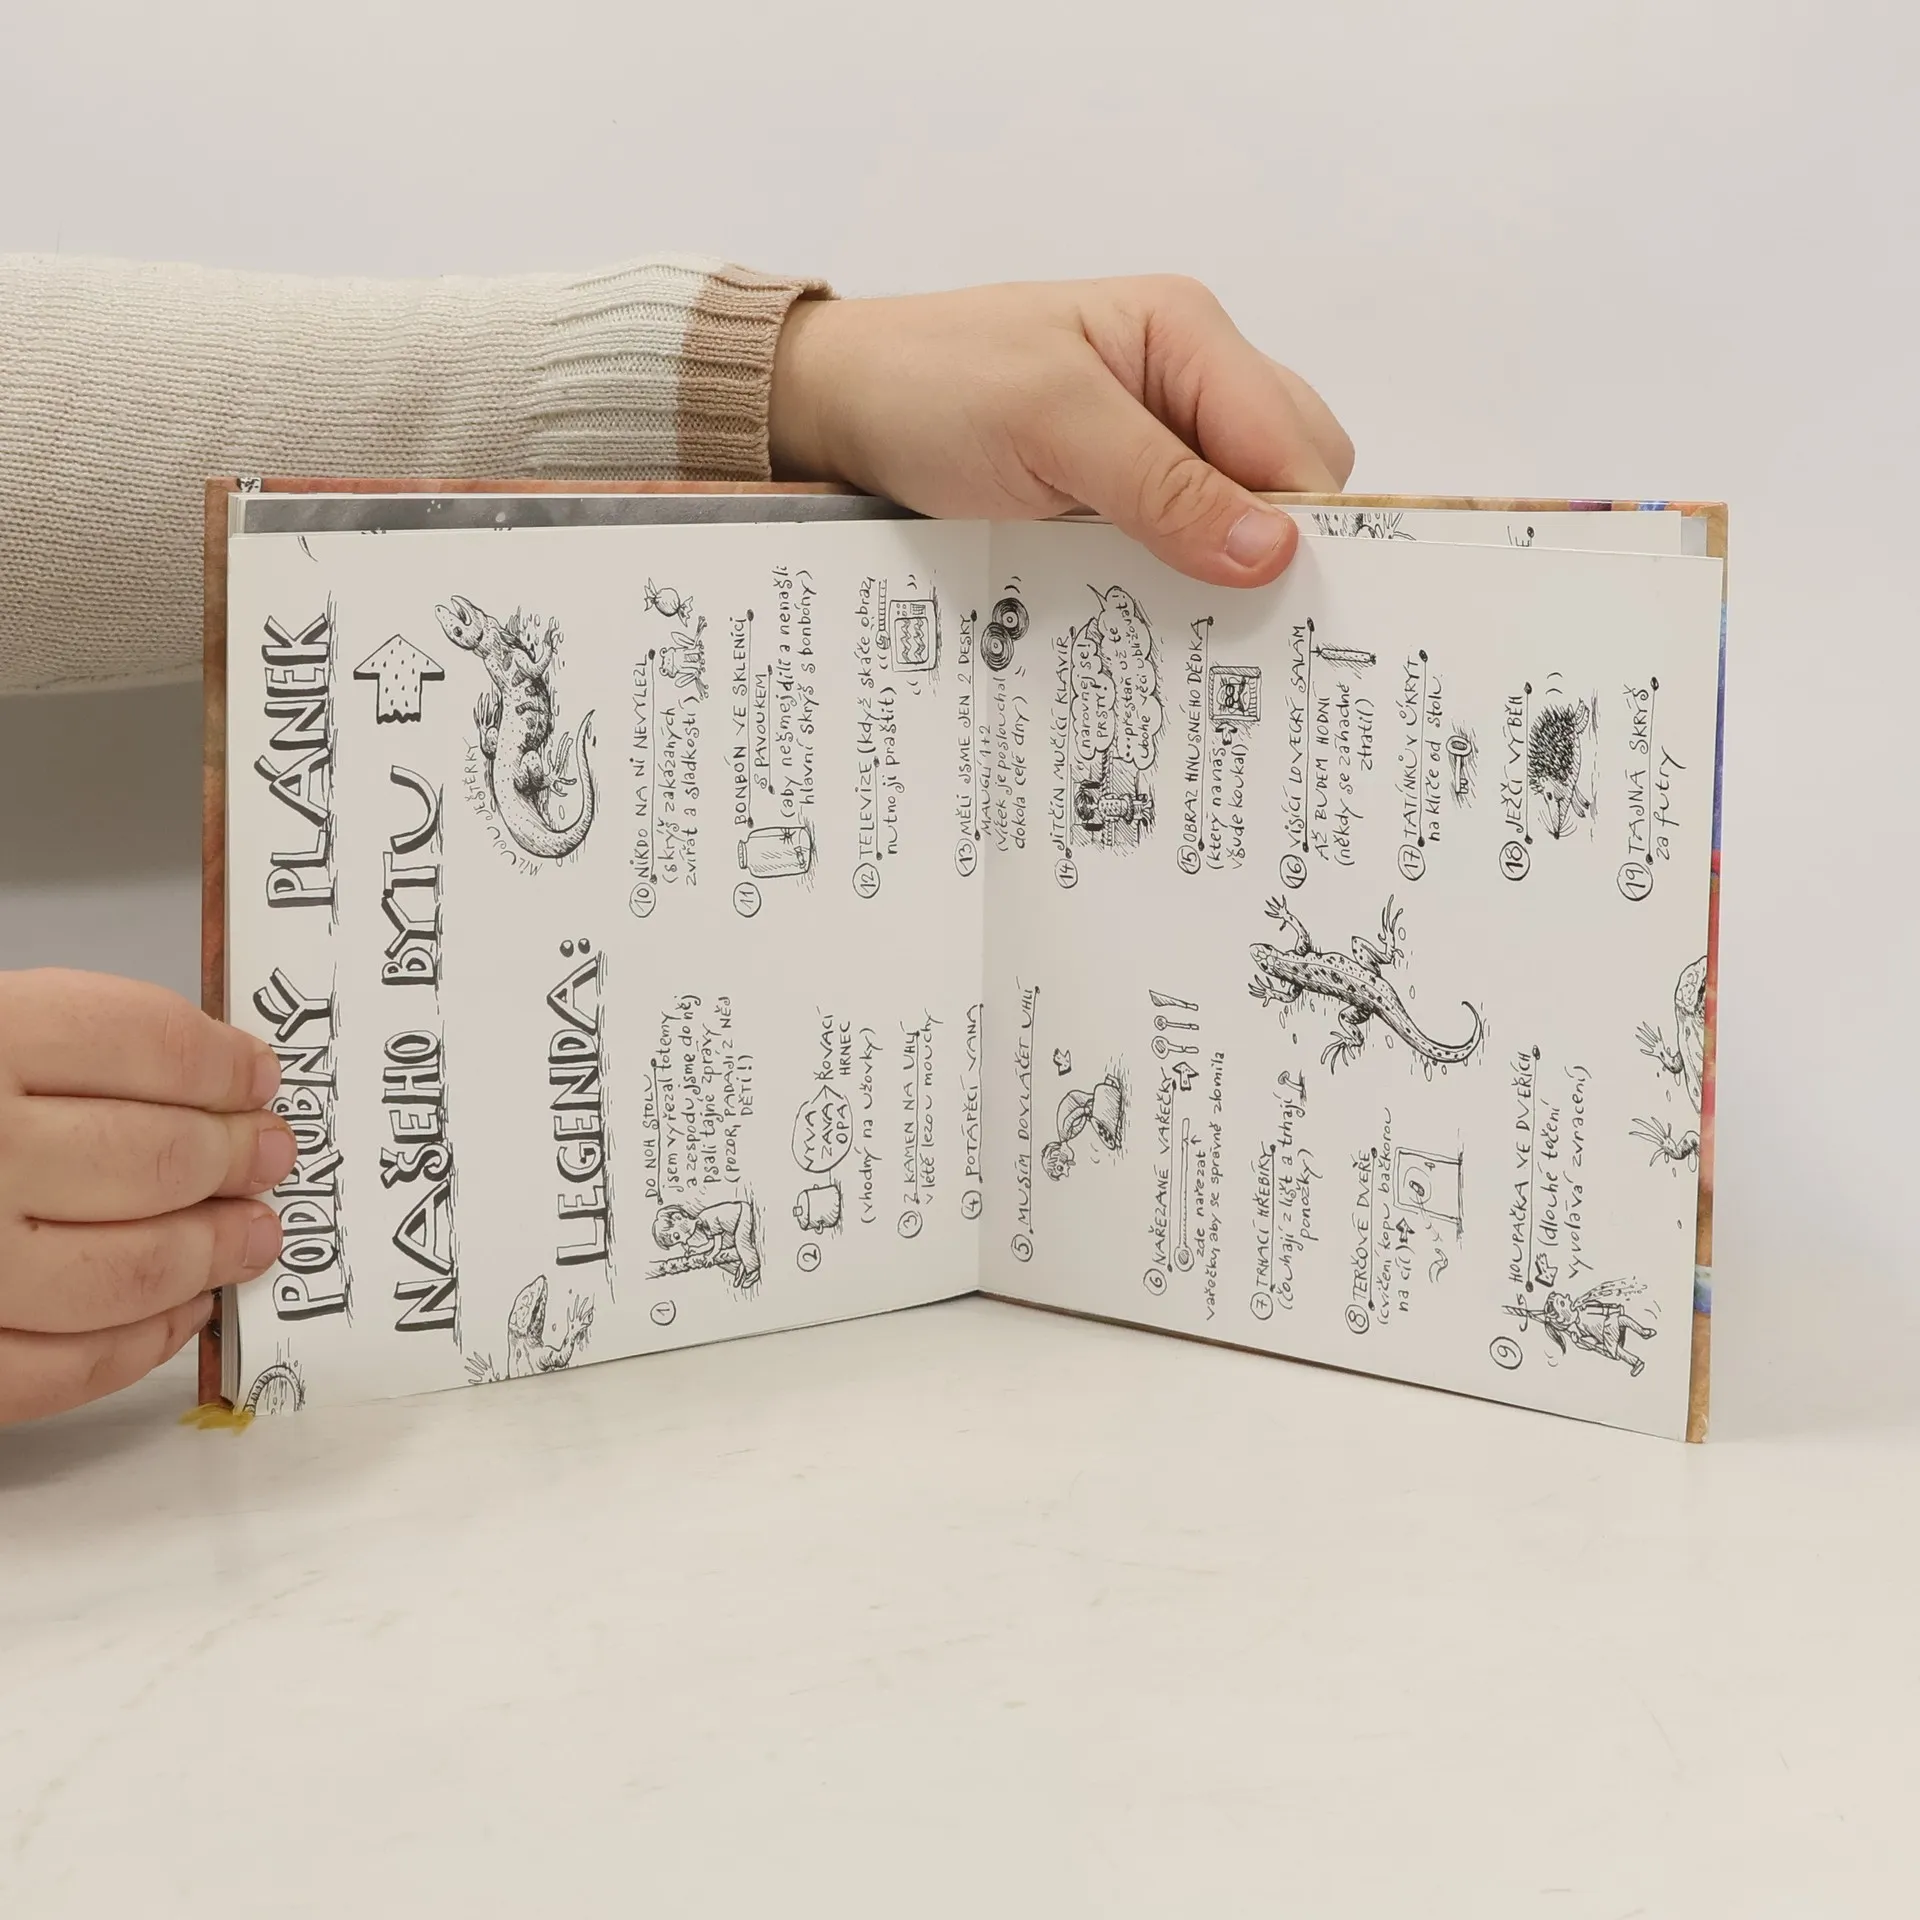 PODROBNÝ PLÁNEK
NAŠEHO BYTU
LEGENDA:
1 DO NOH STOLU
jsem vyřezal totemy
a zespodu jsme do něj
psali tajné zprávy
(POZOR, PADAJÍ Z NĚJ
DĚTI!)
2 VYVA
ŘOVACÍ
ZAVA
OPA
HRNEC
(vhodný na užovky)
3 Z KAMEN NA UHLÍ
v létě lezou mouchy
4 POTÁPĚCÍ VANA
5 MUSÍM DOVLÁČET UHLÍ
6 NAŘEZANÉ VAŘEČKY
zde nařezat
vařečku, aby se správně zlomila
7 TRHACÍ HŘEBÍKY
(čouhají z lišt a trhají
ponožky)
8 TERČOVÉ DVEŘE
(cvičení kopu bačkorou
na cíl)
9 HOUPAČKA VE DVEŘÍCH
(dlouhé točení
vyvolává zvracení)
MILUJU JEŠTĚRKY
10 NIKDO NA NÍ NEVYLEZL
(skrýš zakázaných
zvířat a sladkostí)
11 BONBÓN VE SKLENICI
S PAVOUKEM
(aby nešmejdili a nenašli
hlavní skrýš s bonbóny)
12 TELEVIZE (když skáče obraz,
nutno ji praštit)
13 MĚLI JSME JEN 2 DESKY
MAUGLÍ 1+2
(Vítek je poslouchal
dokola celé dny)
14 JITČIN MUČÍCÍ KLAVÍR
(narovnej se!
PRSTY!
...přestaň už té
ubohé věci ubližovat!
15 OBRAZ HNUSNÉHO DĚDKA
(který na nás
všude koukal)
16 VISÍCÍ LOVECKÝ SALÁM
AŽ BUDEM HODNÍ
(někdy se záhadně
ztratil)
17 TATÍNKŮV ÚKRYT
na klíče od stolu
18 JEŽČÍ VÝBĚH
19 TAJNÁ SKRÝŠ
za futry